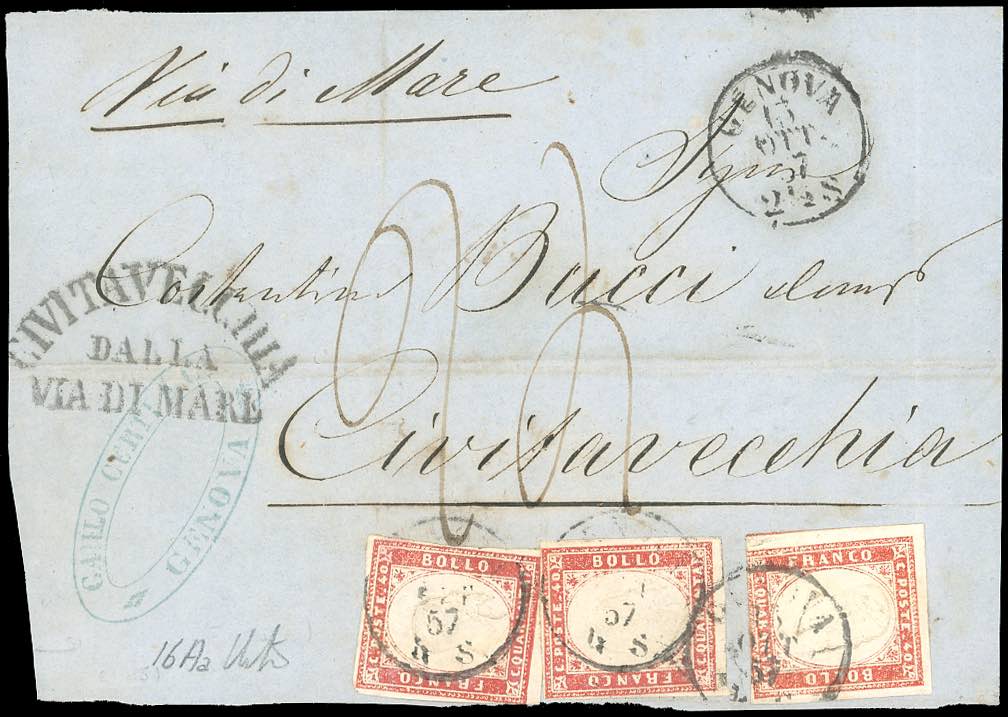 Via di Mare
GENOVA
13
OTT
57
2½ S
Sigr
Costantino Bucci
Civitavecchia
CIVITAVECCHIA
DALLA
VIA DI MARE
CAMILO
GENOVA
16Aa
BOLLO
C. POSTE. 40
C. QUARANTA
FRANCO
57
S
BOLLO
C. POSTE. 40
C. QUARANTA
FRANCO
57
S
FRANCO
C. POSTE 40
C. QUARANTA
BOLLO